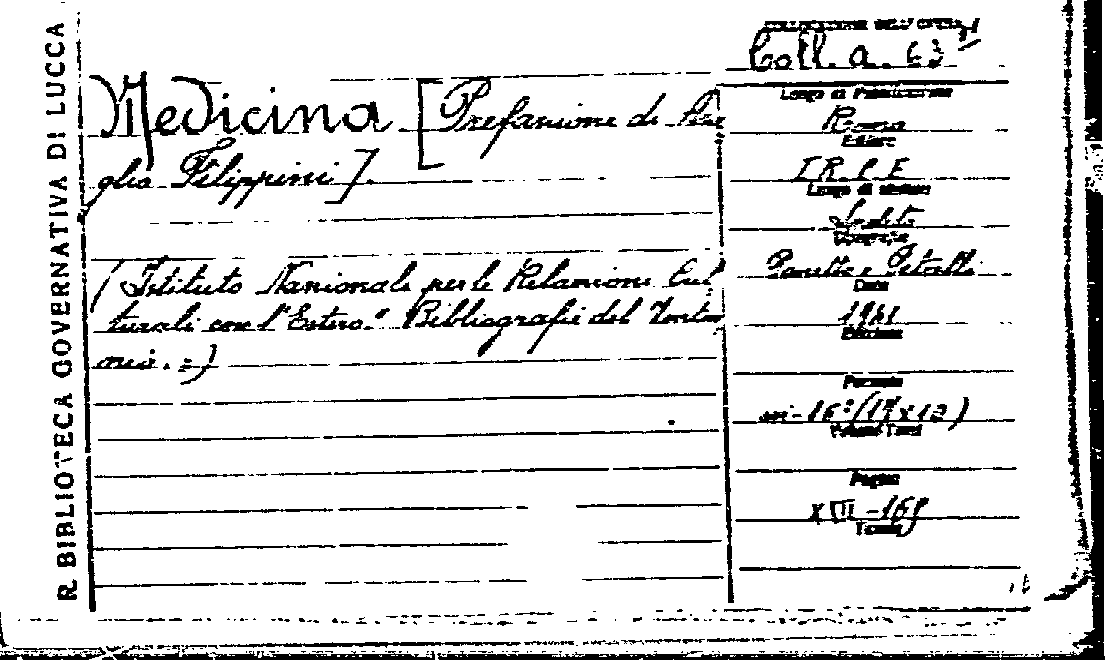 R. BIBLIOTECA GOVERNATIVA DI LUCCA
COLLOCAZIONE DELL'OPERA
Coll. a. 63
Medicina [Prefazione di
glio Filippini].
(Istituto Nazionale per le Relazioni Cul
turali con l'Estero. Bibliografie del Vento
nio. =)
Luogo di Pubblicazione
Roma
Editore
I.R.C.E
Luogo di stampa
Tipografia
Panetto e Petrelli
Data
1941
Edizione
Formato
in-16° (17x12)
Volumi Tomi
Pagine
XIII-169
Tavole